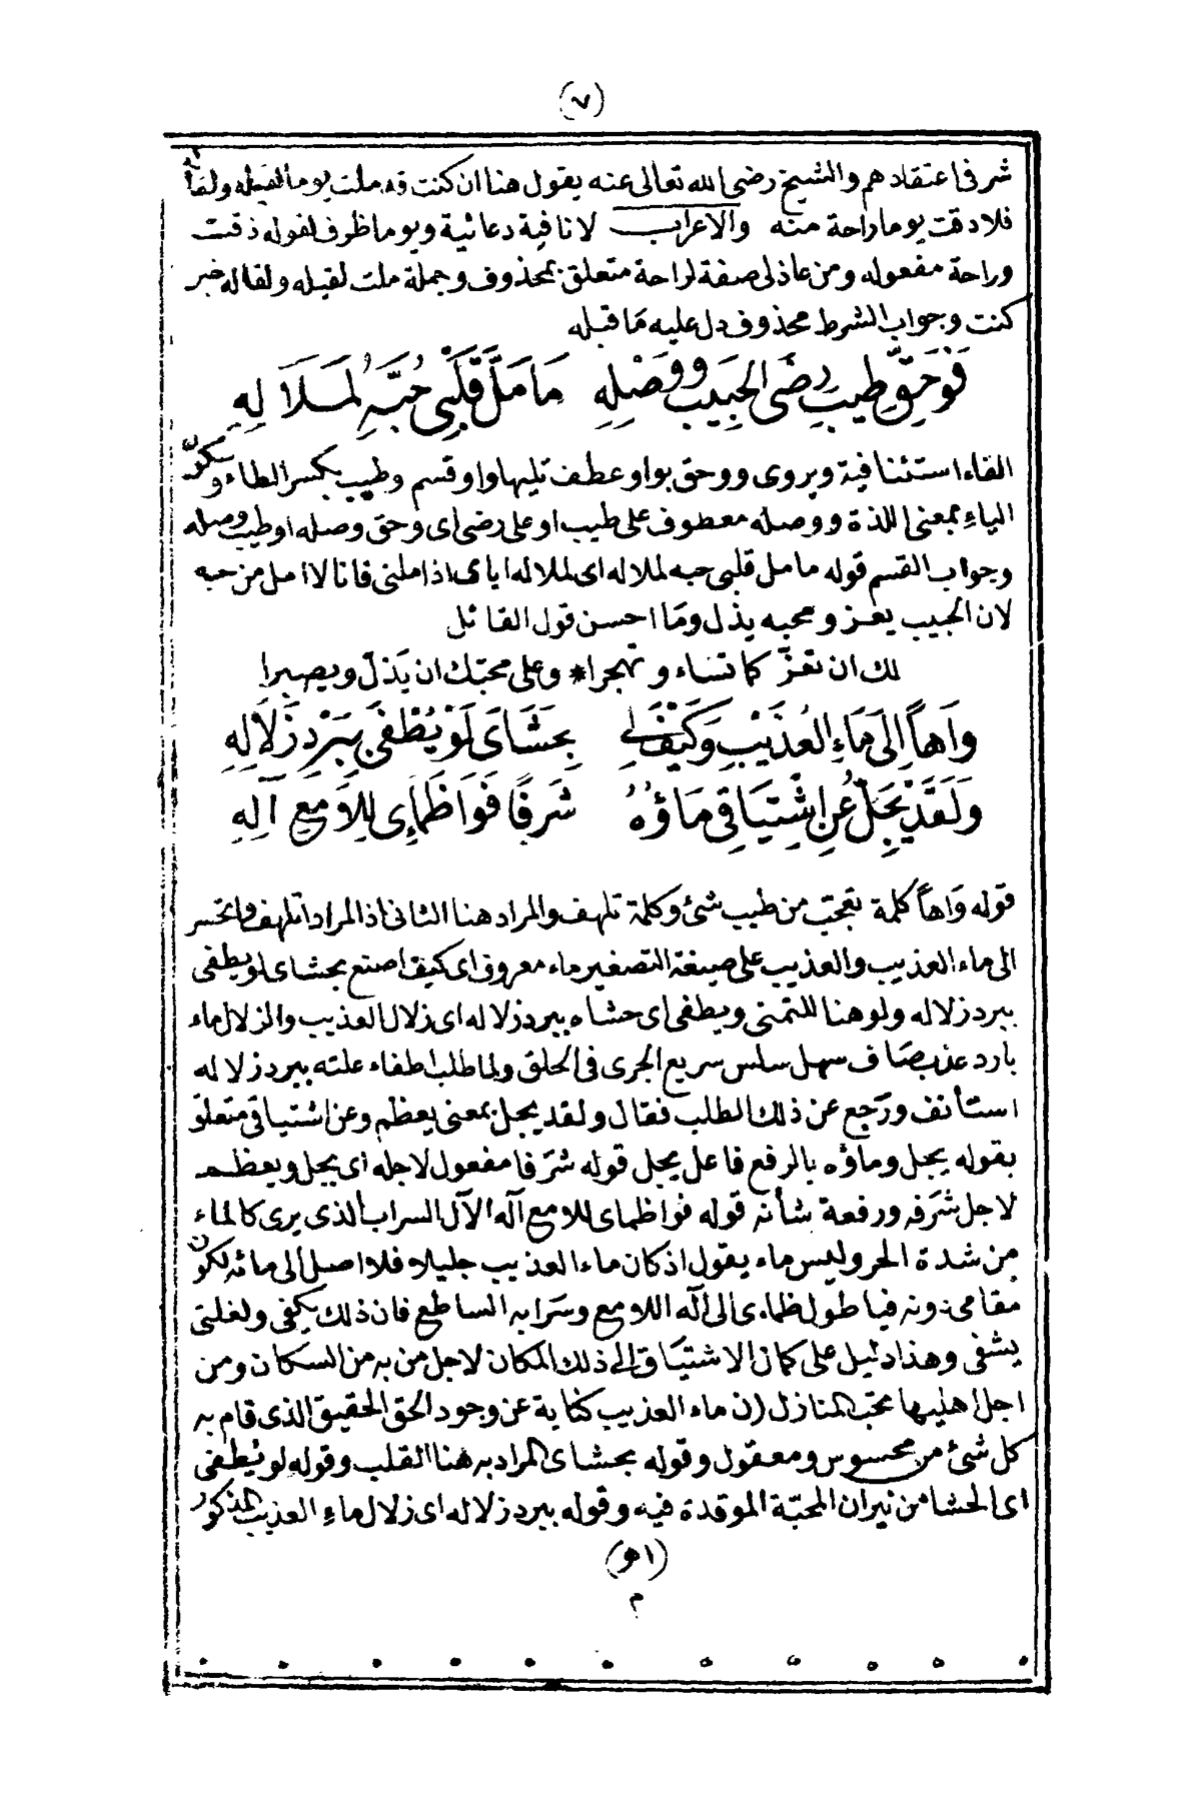 (٧)
شر فى اعتقادهم والشيخ رضى الله تعالى عنه يقول هنا ان كنت قد ملت يوما لقيله ولقاله
فلا ذقت يوما راحة منه والاعراب لا نافية دعائية ويوما ظرف لقوله ذقت
وراحة مفعوله ومن عاذلى صفة لراحة متعلق بمحذوف وجملة ملت لقيله ولقاله خبر
كنت وجواب الشرط محذوف دل عليه ما قبله
فَوَحَقِّ طيبِ رِضَى الحَبِيبِ وَوَصْلِهِ مَا مَلَّ قَلْبِى حُبَّهُ لِمَلَالِهِ
الفاء استئنافية ويروى ووحق بواو عطف تليها واو قسم وطيب بكسر الطاء وسكون
الياءِ بمعنى اللذة ووصله معطوف على طيب او على رضى اى وحق وصله او طيب وصله
وجواب القسم قوله ما مل قلبى حبه لملاله اى لملاله اياى اذا ملنى فانا لا امل من حبه
لان الحبيب يعز ومحبه يذل وما احسن قول القائل
لك ان تعزّ كما تشاء وتهجرا * وعلى محبك ان يَذلّ ويصبرا
وَاهاً إِلَى مَاءِ العُذَيْبِ وَكَيْفَ لِى بِحَشَاىَ لَوْ يُطْفَى بِبَرْدِ زُلَالِهِ
وَلَقَدْ يَجِلُّ عَنِ اشْتِيَاقِى مَاؤُهُ شَرَفًا فَوَاظَمَاِى لِلَامِعِ آلِهِ
قوله وَاهاً كلمة تعجب من طيب شئ وكلمة تلهف والمراد هنا الثانى اذ المراد اتلهف واتحسر
الى ماء العذيب والعذيب على صيغة التصغير ماء معروف اى كيف اصنع بحشاى لو يطفى
ببرد زلاله ولو هنا للتمنى ويطفى اى حشاه ببرد زلاله اى زلال العذيب والزلال ماء
بارد عذب صاف سهل سلس سريع الجرى فى الحلق ولما طلب اطفاء غلته ببرد زلاله
استأنف ورجع عن ذلك الطلب فقال ولقد يجل بمعنى يعظم وعن اشتياقى متعلق
بقوله يجل وماؤه بالرفع فاعل يجل قوله شرفا مفعول لاجله اى يجل ويعظم
لاجل شَرَفه ورفعة شأنه قوله فواظماى للامع آله الآل السراب الذى يرى كالماء
من شدة الحر وليس ماء يقول اذ كان ماء العذيب جليلا فلا اصل الى مائه لكون
مقامى دونه فيا طول ظماءى الى آله اللامع وسرابه الساطع فان ذلك يكفى ولغلتى
يشفى وهذا دليل على كمال الاشتياق الى ذلك المكان لاجل من به من السكان ومن
اجل اهليها تحب المنازل (ن ماء العذيب كناية عن وجود الحق الحقيقى الذى قام به
كل شئ من محسوس ومعقول وقوله بحشاى المراد به هنا القلب وقوله لو يُطفى
اى الحشا من نيران المحبّة الموقدة فيه وقوله ببرد زلاله اى زلال ماءِ العذيب المذكور
(اهـ)
م